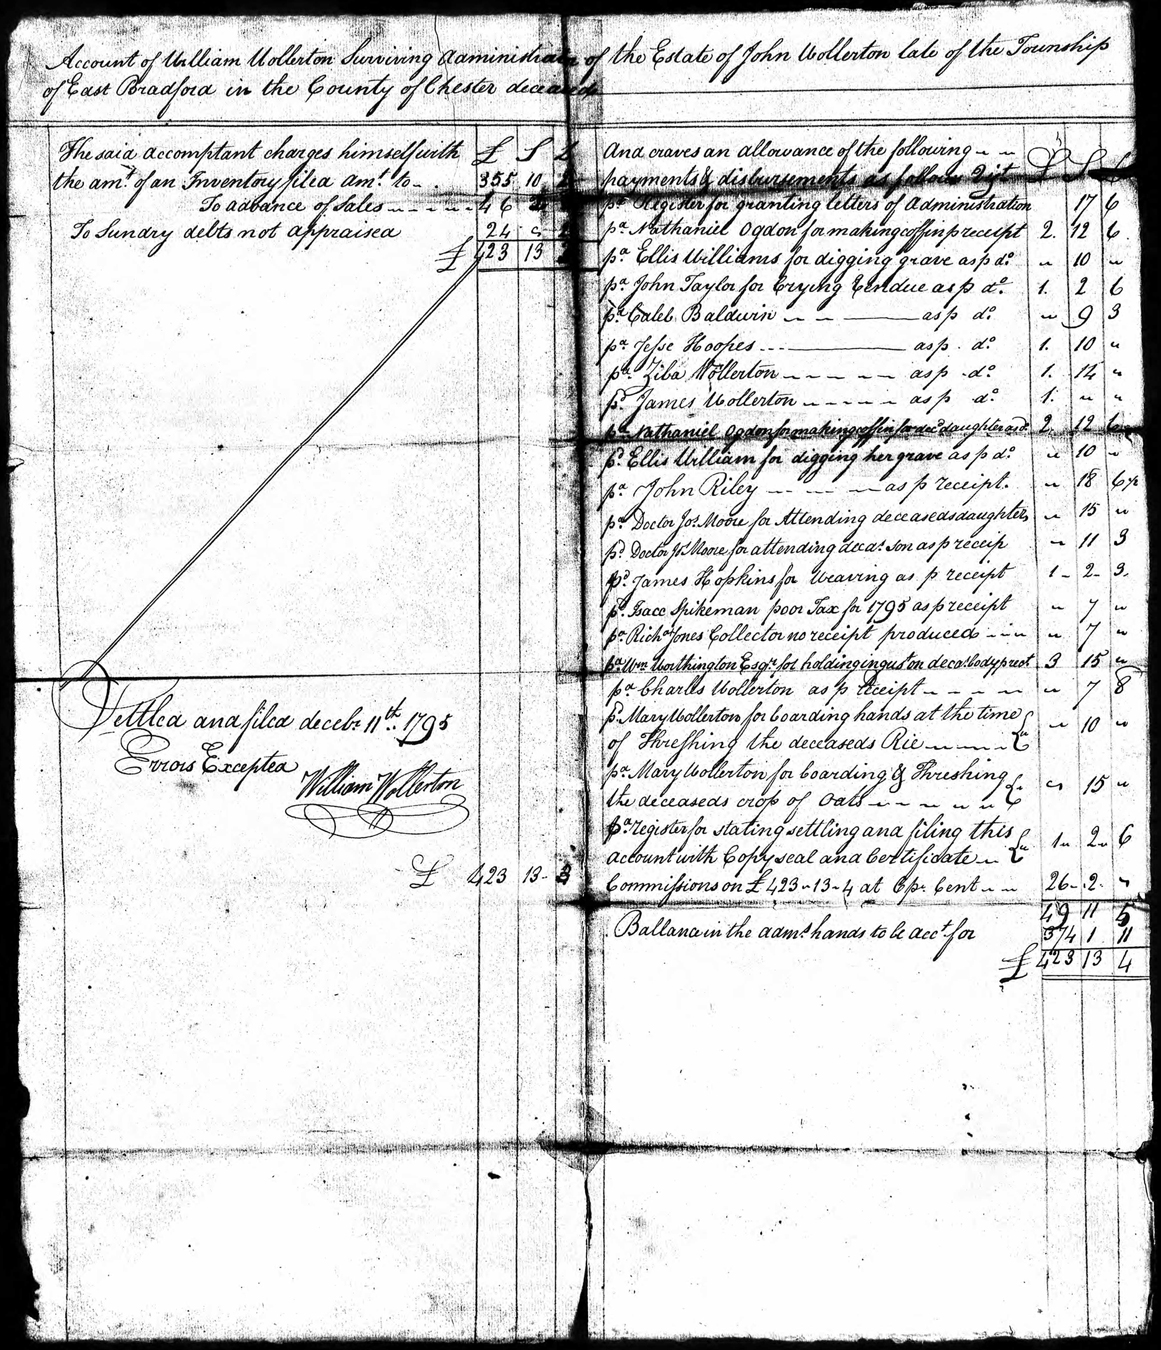 Account of William Wollerton Surviving Administrator of the Estate of John Wollerton late of the Township
of East Bradford in the County of Chester deceased
The said accomptant charges himself with £ S
the amt. of an Inventory filed amt. to 355 10
To advance of Sales 46
To Sundry debts not appraised 24
£ 423 13
Settled and filed decebr. 11th. 1795
Errors Excepted
William Wollerton
£ 423 13
And craves an allowance of the following
payments & disbursements as follows Vizt £ S
pd. Register for granting letters of Administration 17 6
pd. Nathaniel Ogdon for making coffin p receipt 2. 12 6
pd. Ellis Williams for digging grave as p do. " 10 "
pd. John Taylor for Crying Vendue as p do. 1. 2 6
pd. Caleb Baldwin as p do. " 9 3
pd. Jesse Hoopes as p do. 1. 10 "
pd. Ziba Wollerton as p do. 1. "
pd. James Wollerton as p do. 1. " "
pd. Nathaniel Ogdon for making coffin for decd. daughter as do. 2. 12 6
pd. Ellis William for digging her grave as p do. " 10 "
pd. John Riley as p receipt. " 18 6½
pd. Doctor Jos. Moore for Attending deceaseds daughter, " 15 "
pd. Doctor Js. Moore for attending decds. son as p receip " 11 3
pd. James Hopkins for Weaving as p receipt 1 2 3
pd. Isacc Spikeman poor Tax for 1795 as p receipt " 7 "
pd. Richd. Jones Collector no receipt produced " 7 "
pd. Wm. Worthington Esqr. for holding inquest on decds. body p rect. 3 15 "
pd. Charles Wollerton as p receipt " 7 8
pd. Mary Wollerton for boarding hands at the time
of Threshing the deceaseds Rie " 10 "
pd. Mary Wollerton for boarding & Threshing
the deceaseds crop of Oats " 15 "
pd. register for stating settling and filing this
account with Copy seal and Certificate 1 2 6
Commissions on £ 423-13-4 at 6 pr. Cent 26 2 "
49 11 5
Ballanc in the adms. hands to be acct. for 374 1 11
£ 423 13 4